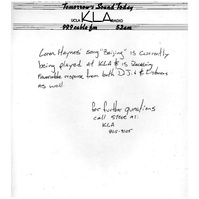 Tomorrow's Sound Today
UCLA KLA RADIO
99.9 cable fm 53 am
Loren Haynes' song "Beijing" is currently
being played at KLA & is receiving
favorable response from both D.J.'s & listeners
as well.
for further questions
call STEVE AT:
KLA
825-9105